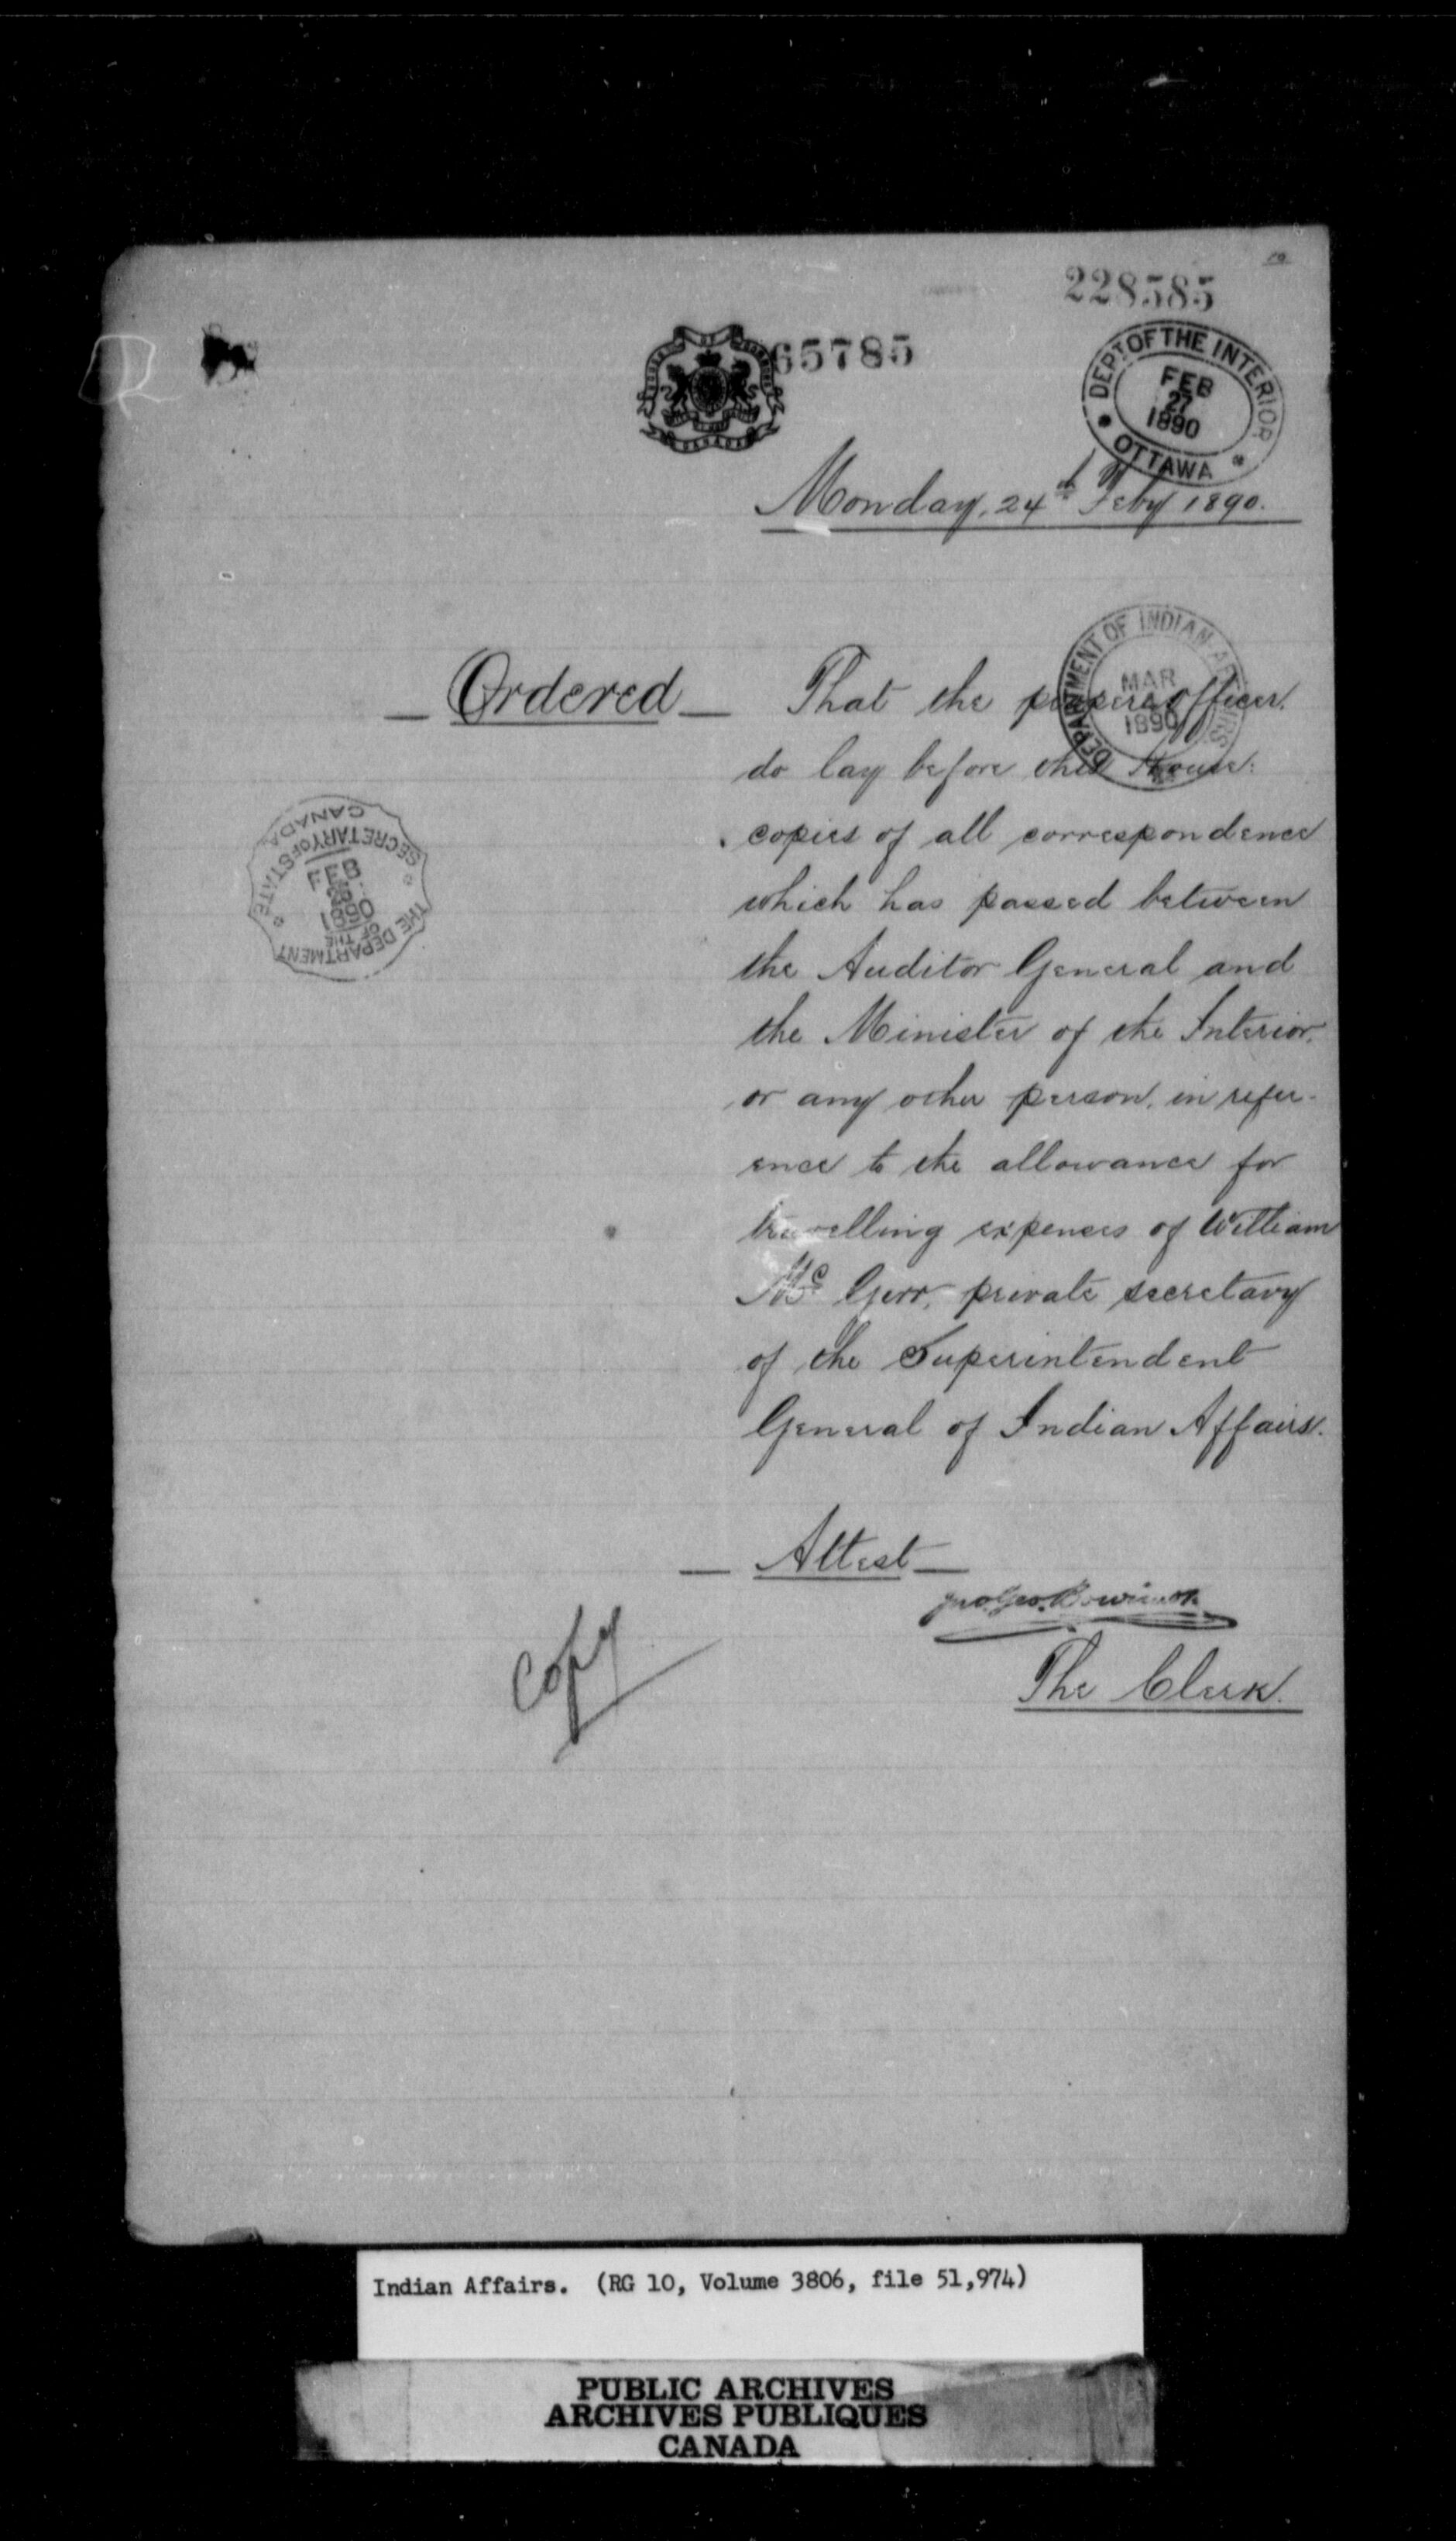 228585
65785
DEPT OF THE INTERIOR
FEB
27
1890
OTTAWA
Monday, 24th Feby 1890.
DEPARTMENT OF INDIAN AFFAIRS
MAR
1890
Ordered That the proper officer
do lay before this House:
copies of all correspondence
which has passed between
the Auditor General and
the Minister of the Interior,
or any other person, in refer-
ence to the allowance for
travelling expenses of William
Mc Girr, private secretary
of the Superintendent
General of Indian Affairs.
THE DEPARTMENT OF THE SECRETARY OF STATE CANADA
FEB
1890
Attest
Jno. Geo. Bourinot
The Clerk.
Copy
Indian Affairs. (RG 10, Volume 3806, file 51,974)
PUBLIC ARCHIVES
ARCHIVES PUBLIQUES
CANADA